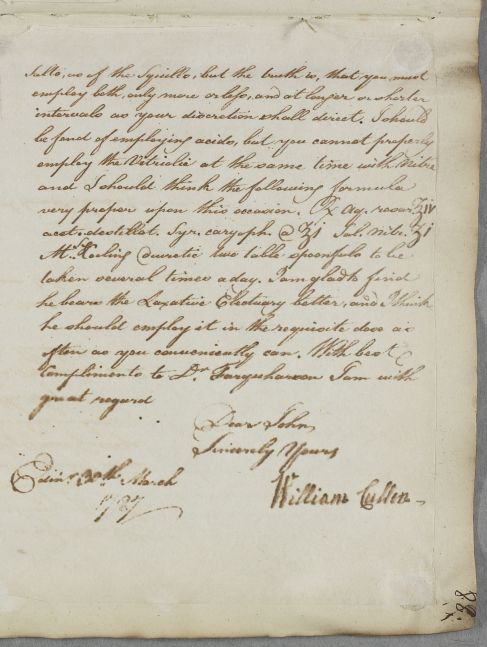 Salts, as of the Squills, but the truth is, that you must
employ both, only more or less, and at longer or shorter
intervals as your discretion shall direct. I should
be fond of employing acids, but you cannot properly
employ the Vitriolic at the same time with Nitre
and I should think the following formula
very proper upon this occasion. ℞ Aq. rosar ℥iv
acet. destillat. Syr. caryoph. @ ℥j Sal. Nitr. ʒj
Mr. diuretic two table spoonfuls to be
taken several times a day. I am glad to find
he bears the Laxative Electuary better, and I think
he should employ it in the requisite dose as
often as you conveniently can. With best
Compliments to Dr. Farquharson I am with
great regard
Dear John
Sincerely Yours
William Cullen
Edinr. 30th March
88